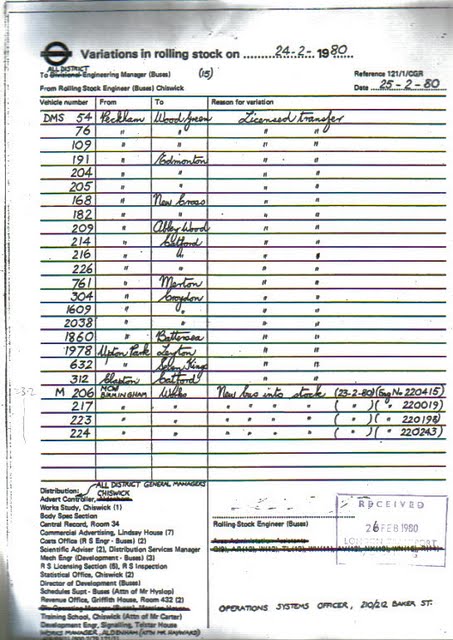 Variations in rolling stock on 24-2-1980
ALL DISTRICT
To Divisional Engineering Manager (Buses) (15) Reference 121/1/CGR
From Rolling Stock Engineer (Buses) Chiswick Date 25-2-80
Vehicle number From To Reason for variation
DMS 54 Peckham Wood Green Licensed transfer
76 " " " "
109 " " " "
191 " Edmonton " "
204 " " " "
205 " " " "
168 " New Cross " "
182 " " " "
209 " Abbey Wood " "
214 " Catford " "
216 " " " "
226 " " " "
761 " Merton " "
304 " Croydon " "
1609 " " " "
2038 " " " "
1860 " Battersea " "
1978 Upton Park Leyton " "
632 " Seven Kings " "
312 Clapton Catford " "
M 206 MCW BIRMINGHAM Wales New bus into stock (23-2-80) (Eng No 220415)
217 " " " " " " ( " ) ( " 220019)
223 " " " " " " ( " ) ( " 220198)
224 " " " " " " ( " ) ( " 220243)
Distribution: ALL DISTRICT GENERAL MANAGERS
CHISWICK
Advert Controller, Aldenham
Works Study, Chiswick (1)
Body Spec Section
Central Record, Room 34
Commercial Advertising, Lindsay House (7)
Costs Office (R S Engr - Buses) (2)
Scientific Adviser (2), Distribution Services Manager
Mech Engr (Development - Buses) (3)
R S Licensing Section (5), R S Inspection
Statistical Office, Chiswick (2)
Director of Development (Buses)
Schedules Supt - Buses (Attn of Mr Hyslop)
Revenue Office, Griffith House, Room 432 (2)
Training School, Chiswick (Attn of Mr Carter)
Development Engr, Signalling, Telstar House
WORKS MANAGER, ALDENHAM
Rolling Stock Engineer (Buses)
RECEIVED
26 FEB 1980
LONDON TRANSPORT
OPERATIONS SYSTEMS OFFICER, 210/212 BAKER ST.